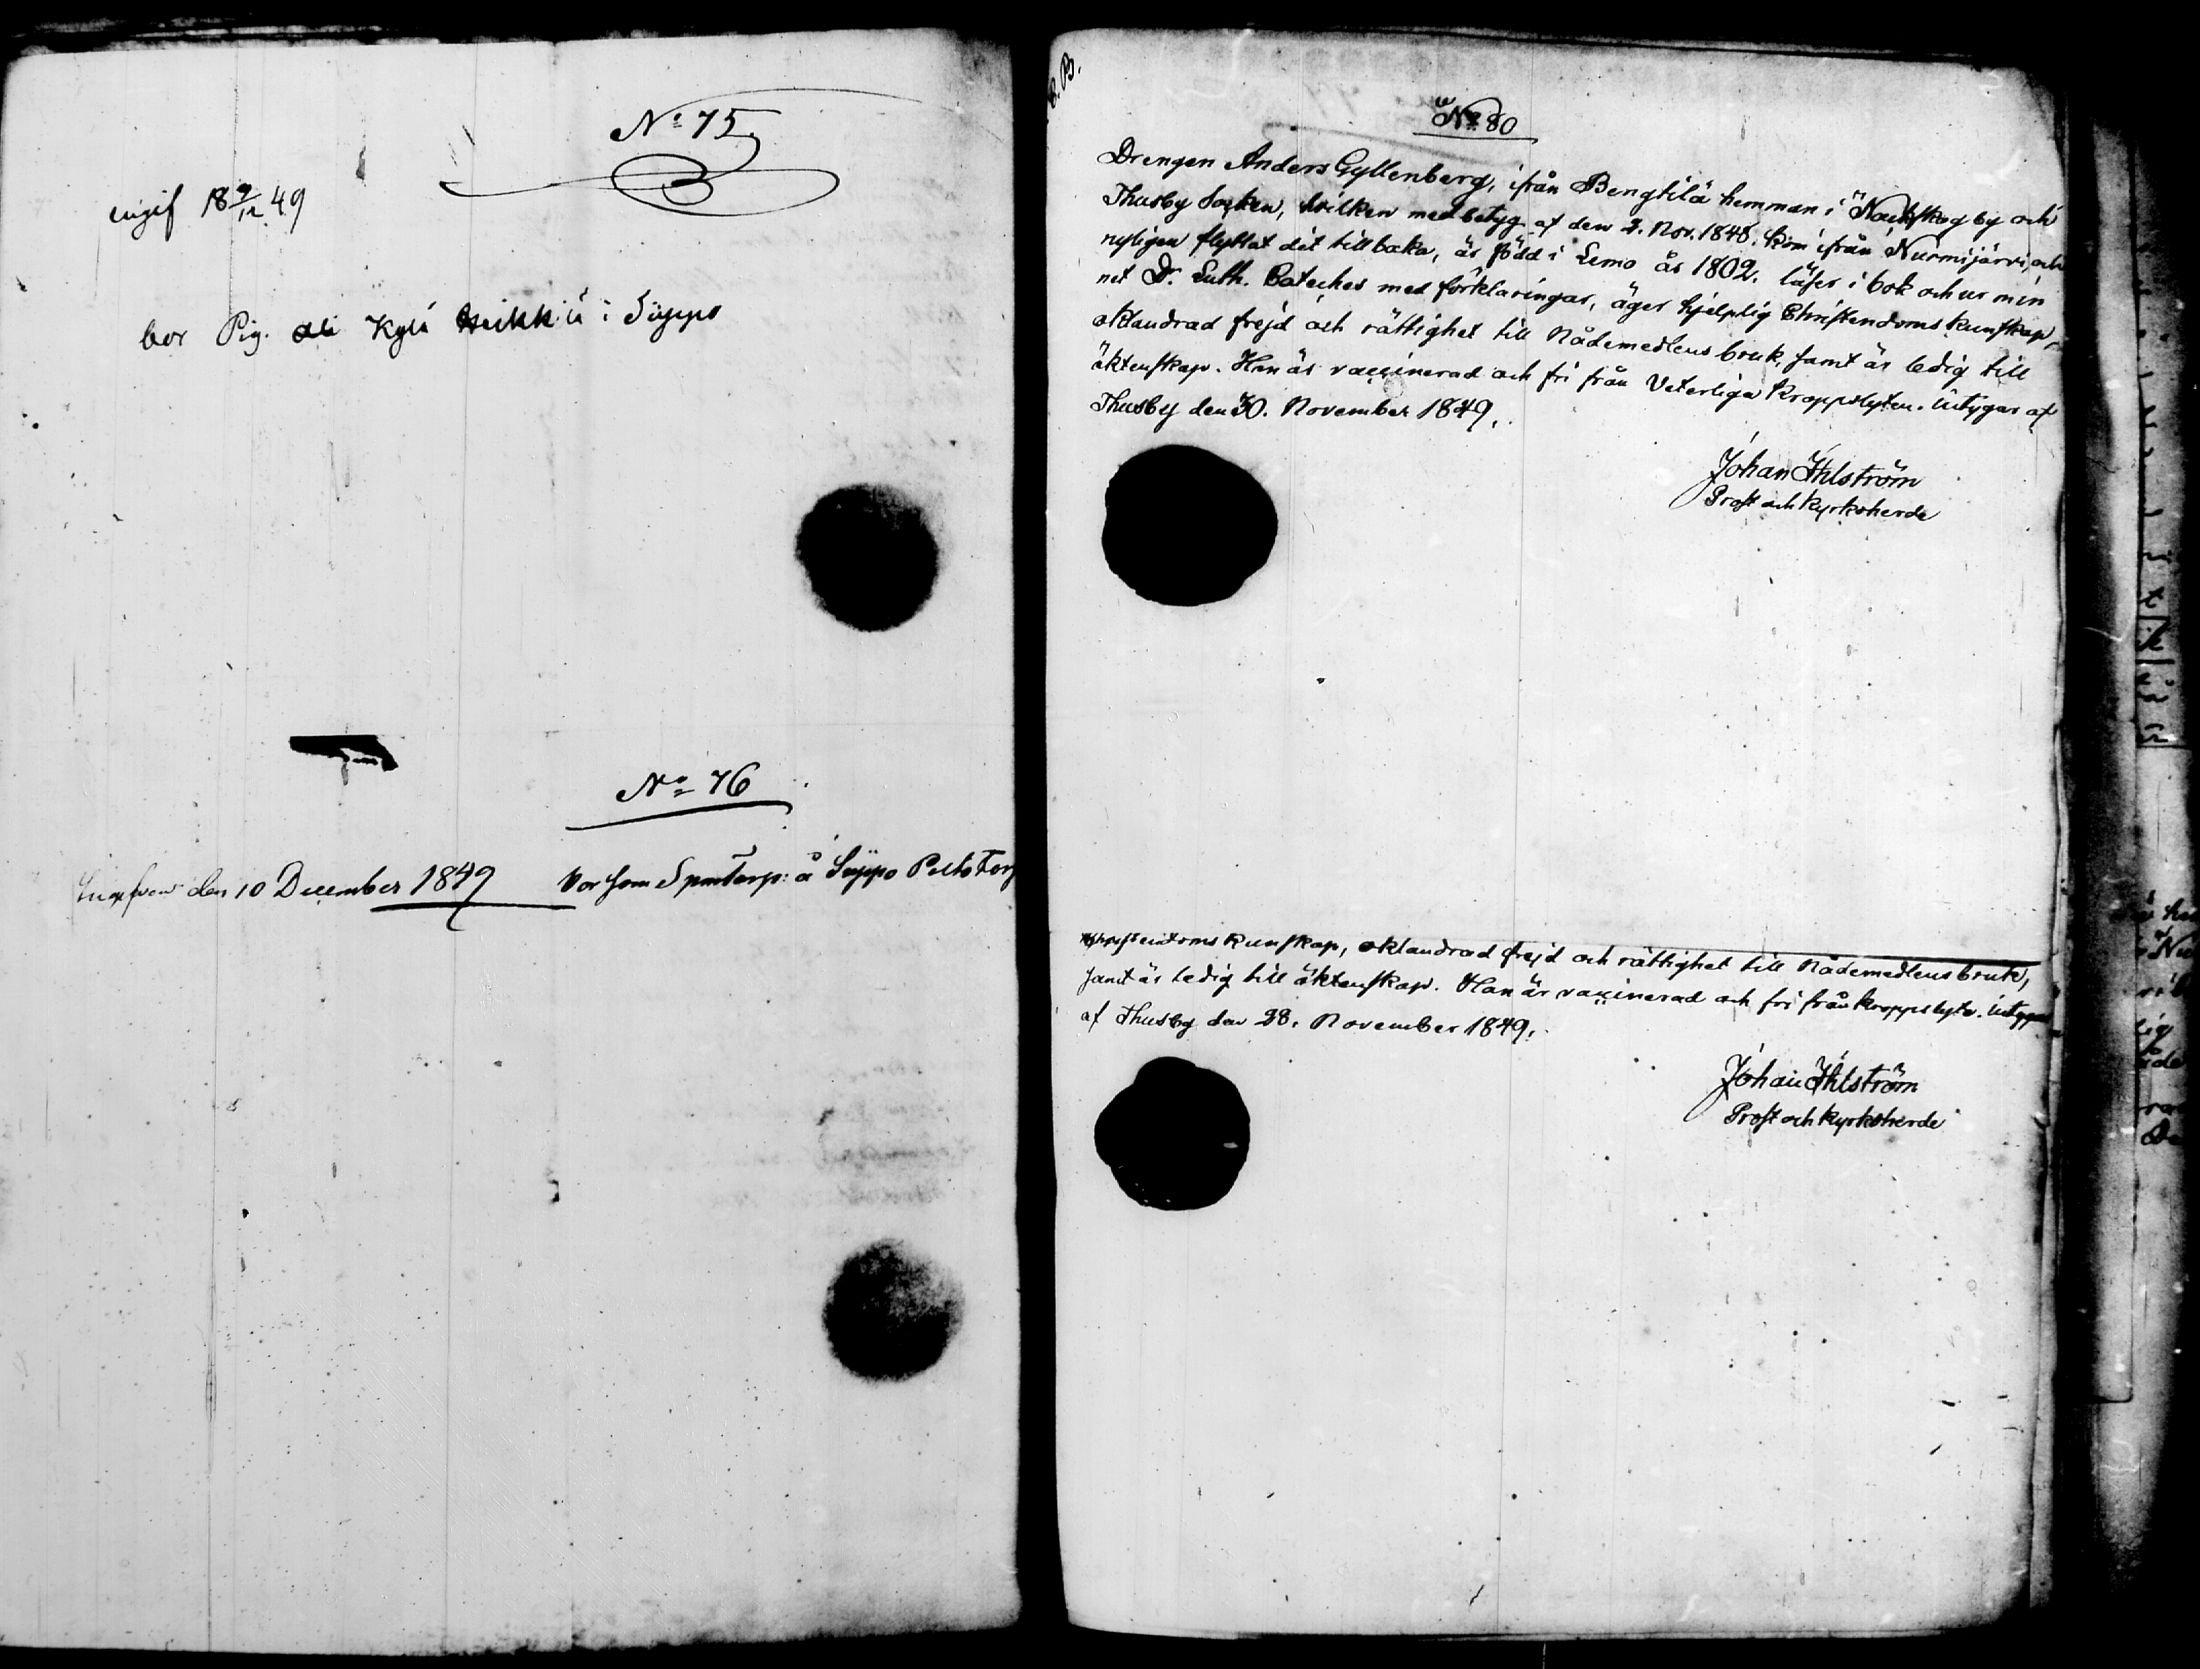 No 75
ingif 18 9/12 49
bor Pig. Kylä Heikkilä i Suppo
No 76
den 10 December 1849 bor som å Suppo Pelto Torp
E. B.
No 80
Drengen Anders Gyllenberg, ifrån Bengtilä hemman i by och
Thusby Socken, hvilken med betyg af den 2. Nov. 1848. kom ifrån Nurmijärvi, och
nyligen flyttat dit tillbaka, är född i Lemo år 1802. läser i bok och ur min
net Dr. Luth. Cateches med förklaringar, äger hjelplig Christendoms kunskap,
oklandrad frejd och rättighet till Nådemedlens bruk, samt är ledig till
äktenskap. Han är vaccinerad och fri från Veterliga Kroppslyten. Intygar af
Thusby den 30. November 1849.
Johan Ihlström
Prost och Kyrkoherde
Christendoms kunskap, oklandrad frejd och rättighet till Nådemedlens bruk,
samt är ledig till äktenskap. Han är vaccinerad och fri från kroppslyte. Intygar
af Thusby den 28. November 1849.
Johan Ihlström
Prost och Kyrkoherde